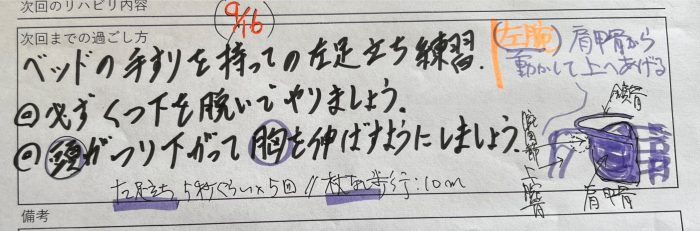 次回のリハビリ内容
9/16
次回までの過ごし方
ベッドの手すりを持っての左足立ち練習.
◎必ずくつ下を脱いでやりましょう.
◎頭がつり下がって胸を伸ばすようにしましょう.
左足立ち 5秒ぐらい×5回 // 杖なし歩行:10m
左腕 肩甲骨から
動かして上へあげる
鎖骨
上腕骨
肩甲骨
備考